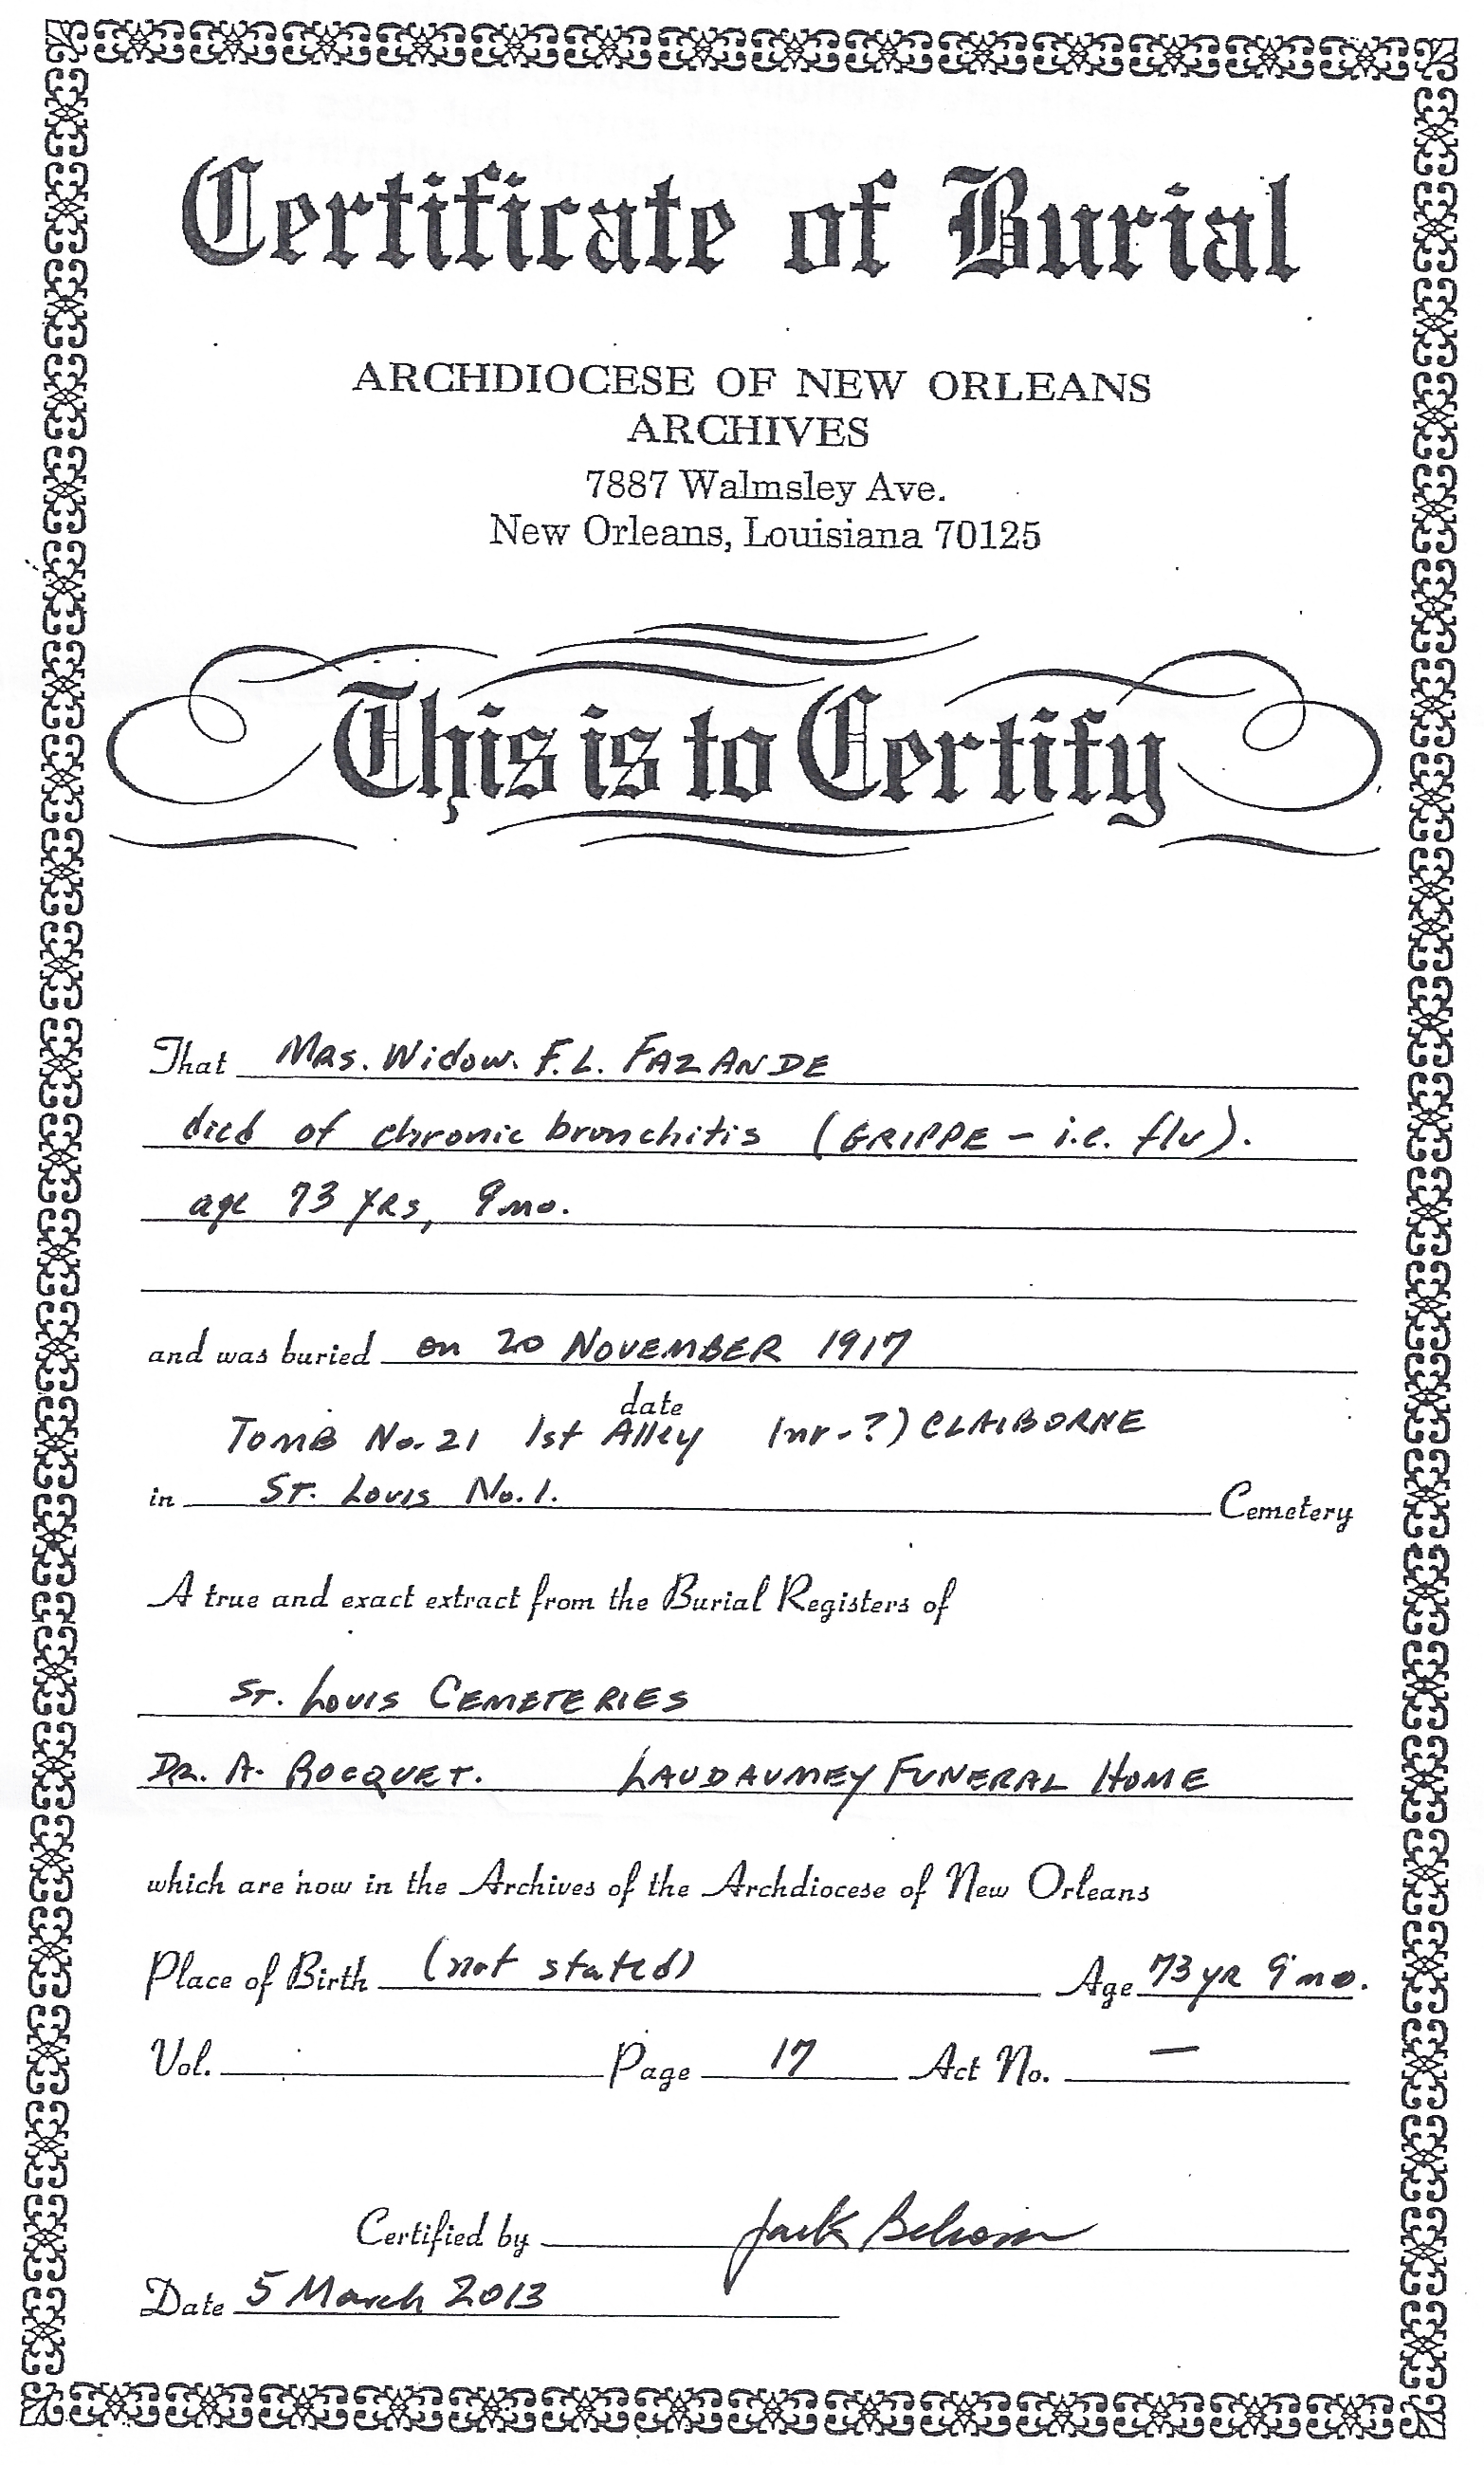 Certificate of Burial
ARCHDIOCESE OF NEW ORLEANS
ARCHIVES
7887 Walmsley Ave.
New Orleans, Louisiana 70125
This is to Certify
That Mrs. Widow. F.L. FAZANDE
died of chronic bronchitis (GRIPPE – i.e. flu).
age 73 yrs, 9 mo.
and was buried on 20 NOVEMBER 1917
date
TOMB No. 21 1st Alley (nr-?) CLAIBORNE
in ST. Louis No. 1. Cemetery
A true and exact extract from the Burial Registers of
ST. LOUIS CEMETERIES
DR. A. ROCQUET. LAUDAUMEY FUNERAL HOME
which are now in the Archives of the Archdiocese of New Orleans
Place of Birth (not stated) Age 73 yr 9 mo.
Vol. Page 17 Act No. —
Certified by Jack Belsom
Date 5 March 2013